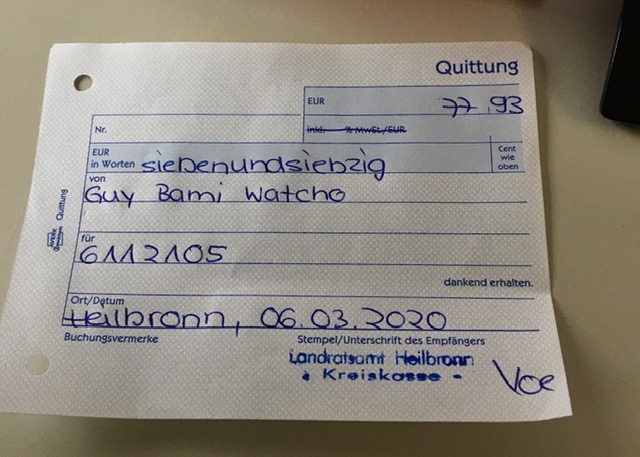 Quittung
EUR 77,93
Nr.
inkl. % MwSt./EUR
EUR
in Worten siebenundsiebzig
Cent
wie
oben
von
Guy Bami Watcho
für
6112105
dankend erhalten.
Ort/Datum
Heilbronn, 06.03.2020
Buchungsvermerke
Stempel/Unterschrift des Empfängers
Landratsamt Heilbronn
- Kreiskasse -
Quittung